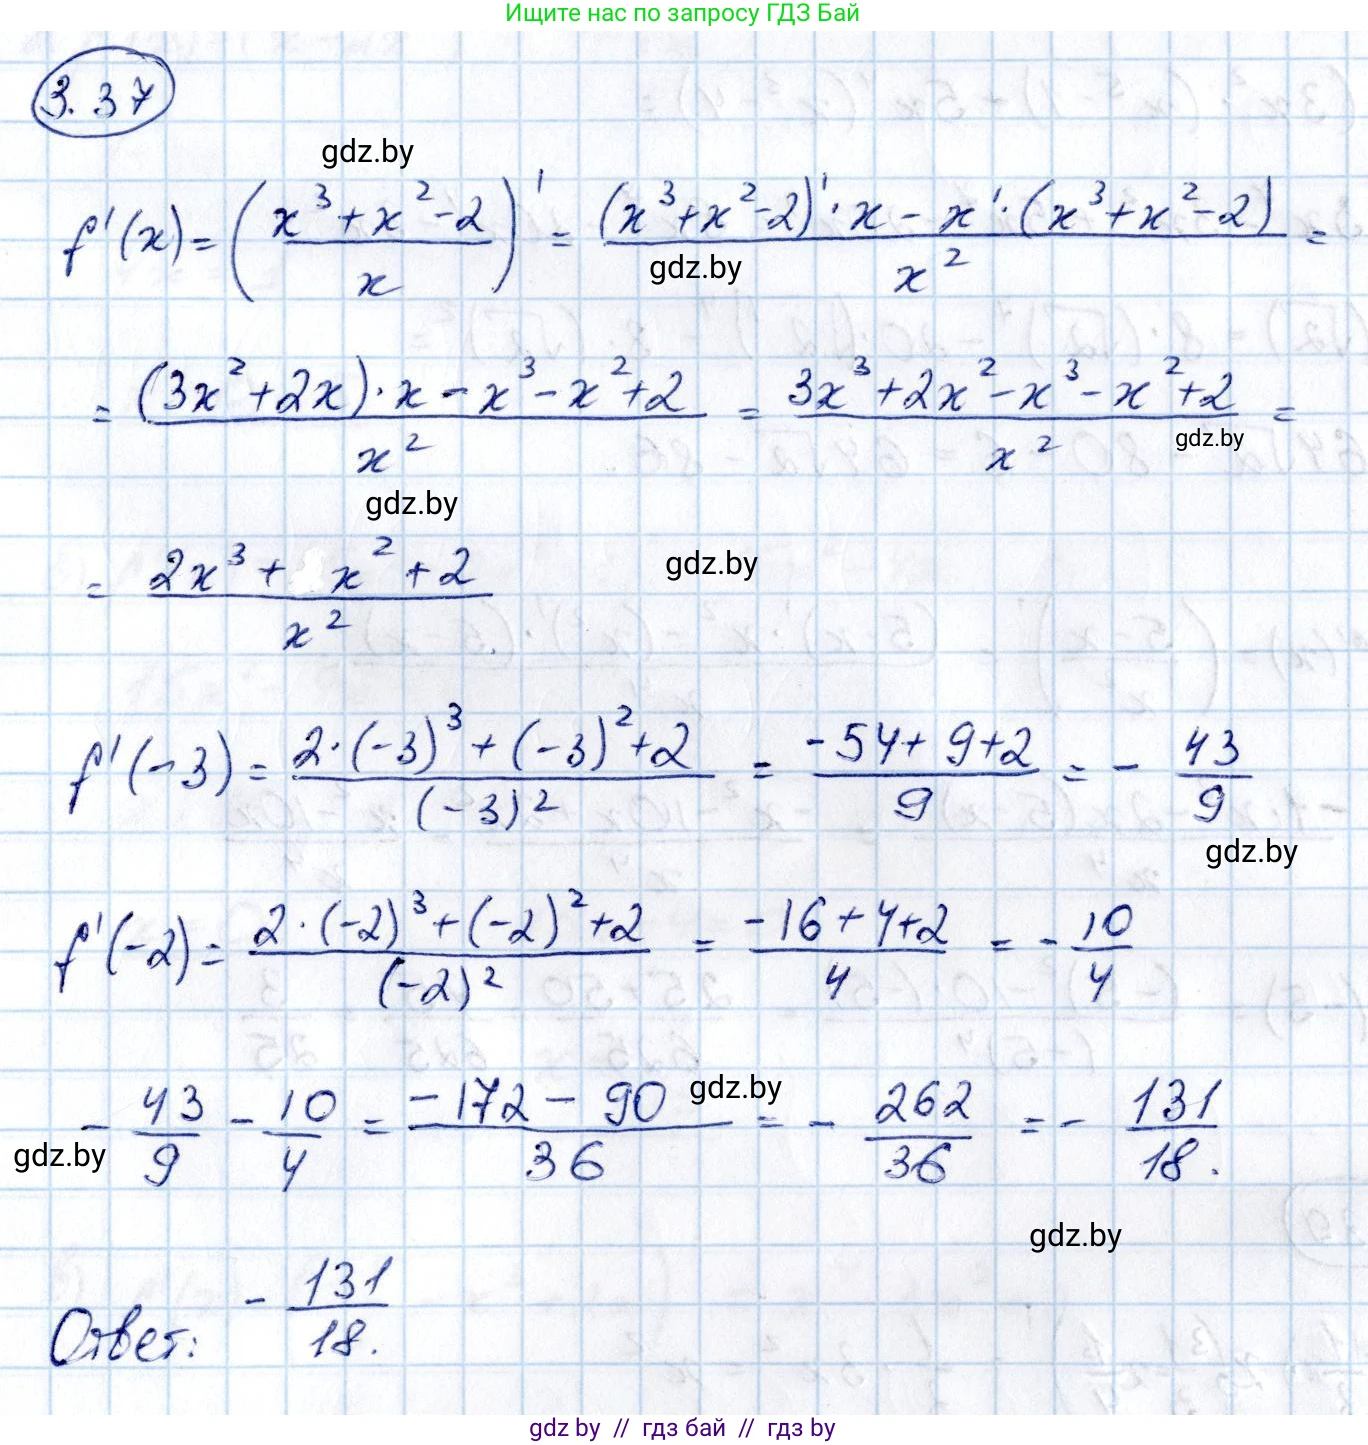 Ищите нас по запросу ГДЗ Бай
3.37
gdz.by
f'(x) = ((x³+x²-2)/x)' = ((x³+x²-2)'·x - x'·(x³+x²-2))/x² =
gdz.by
= ((3x²+2x)·x - x³-x²+2)/x² = (3x³+2x²-x³-x²+2)/x² =
gdz.by
gdz.by
= (2x³+x²+2)/x²
gdz.by
f'(-3) = (2·(-3)³+(-3)²+2)/(-3)² = (-54+9+2)/9 = - 43/9
gdz.by
f'(-2) = (2·(-2)³+(-2)²+2)/(-2)² = (-16+4+2)/4 = - 10/4
- 43/9 - 10/4 = (-172-90)/36 = - 262/36 = - 131/18.
gdz.by
gdz.by
gdz.by
Ответ: - 131/18.
gdz.by // гдз бай // гдз by